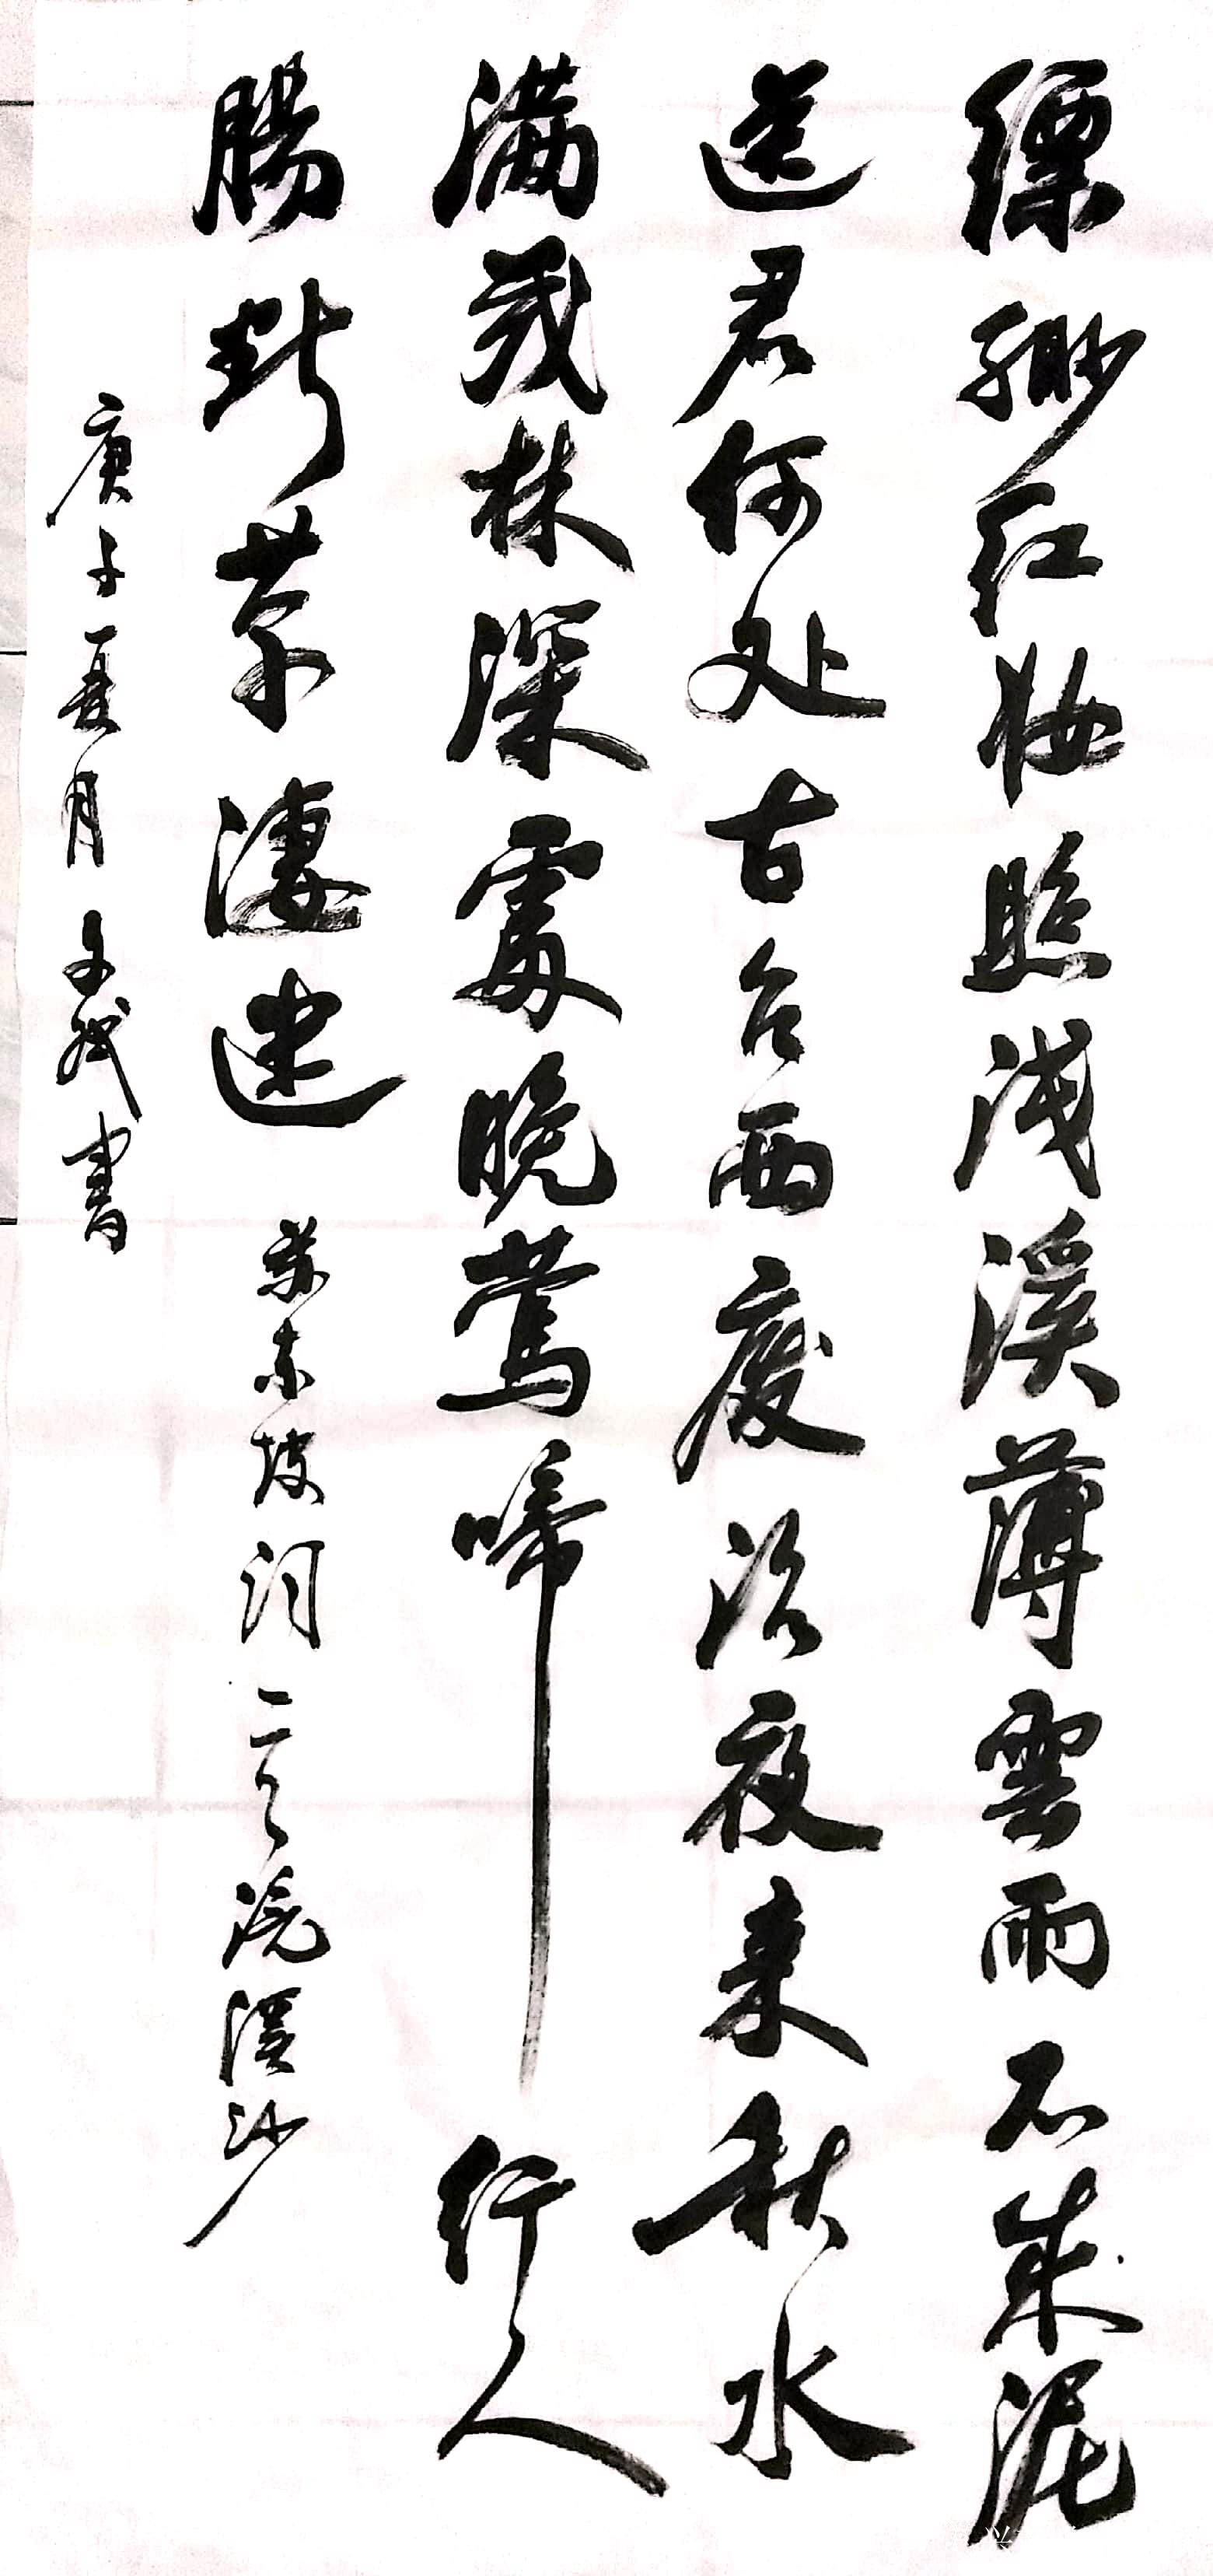 缥緲红妆照浅溪薄雲雨不成泥
送君何处古台西废沼夜来秋水
满茂林深處晚莺啼行人
腸断草凄迷 苏东坡词一首浣溪沙
庚子夏月文書